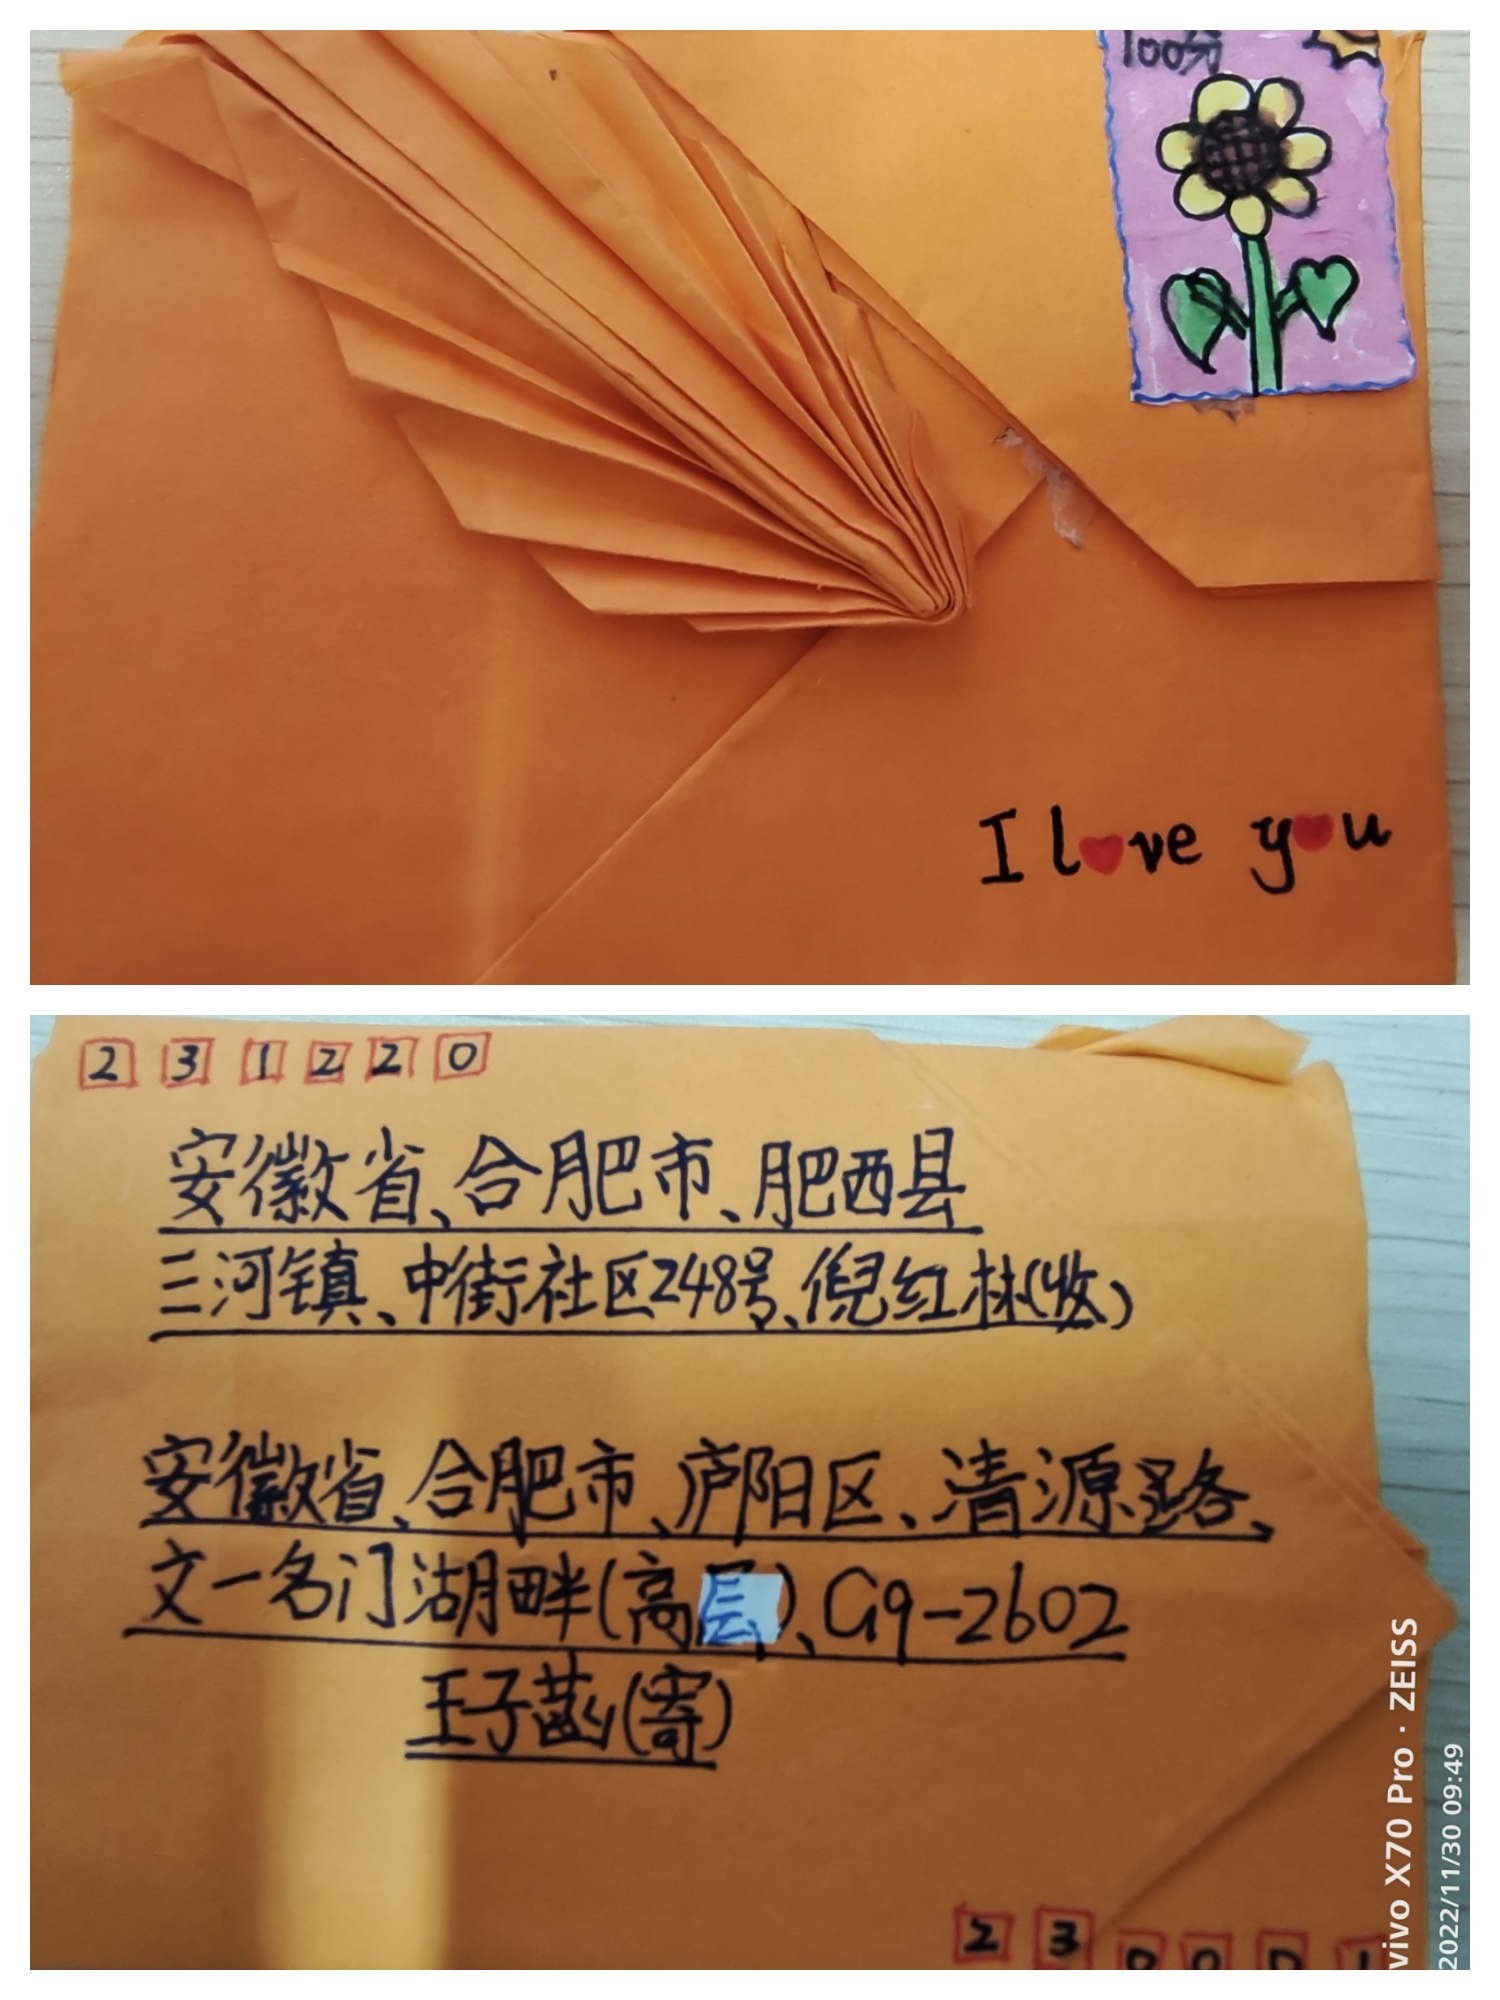 100分
I love you
231220
安徽省、合肥市、肥西县
三河镇、中街社区248号、倪红林(收)
安徽省、合肥市、庐阳区、清源路、
文一名门湖畔(高层)、G9-2602
王子菡(寄)
230001
vivo X70 Pro · ZEISS
2022/11/30 09:49